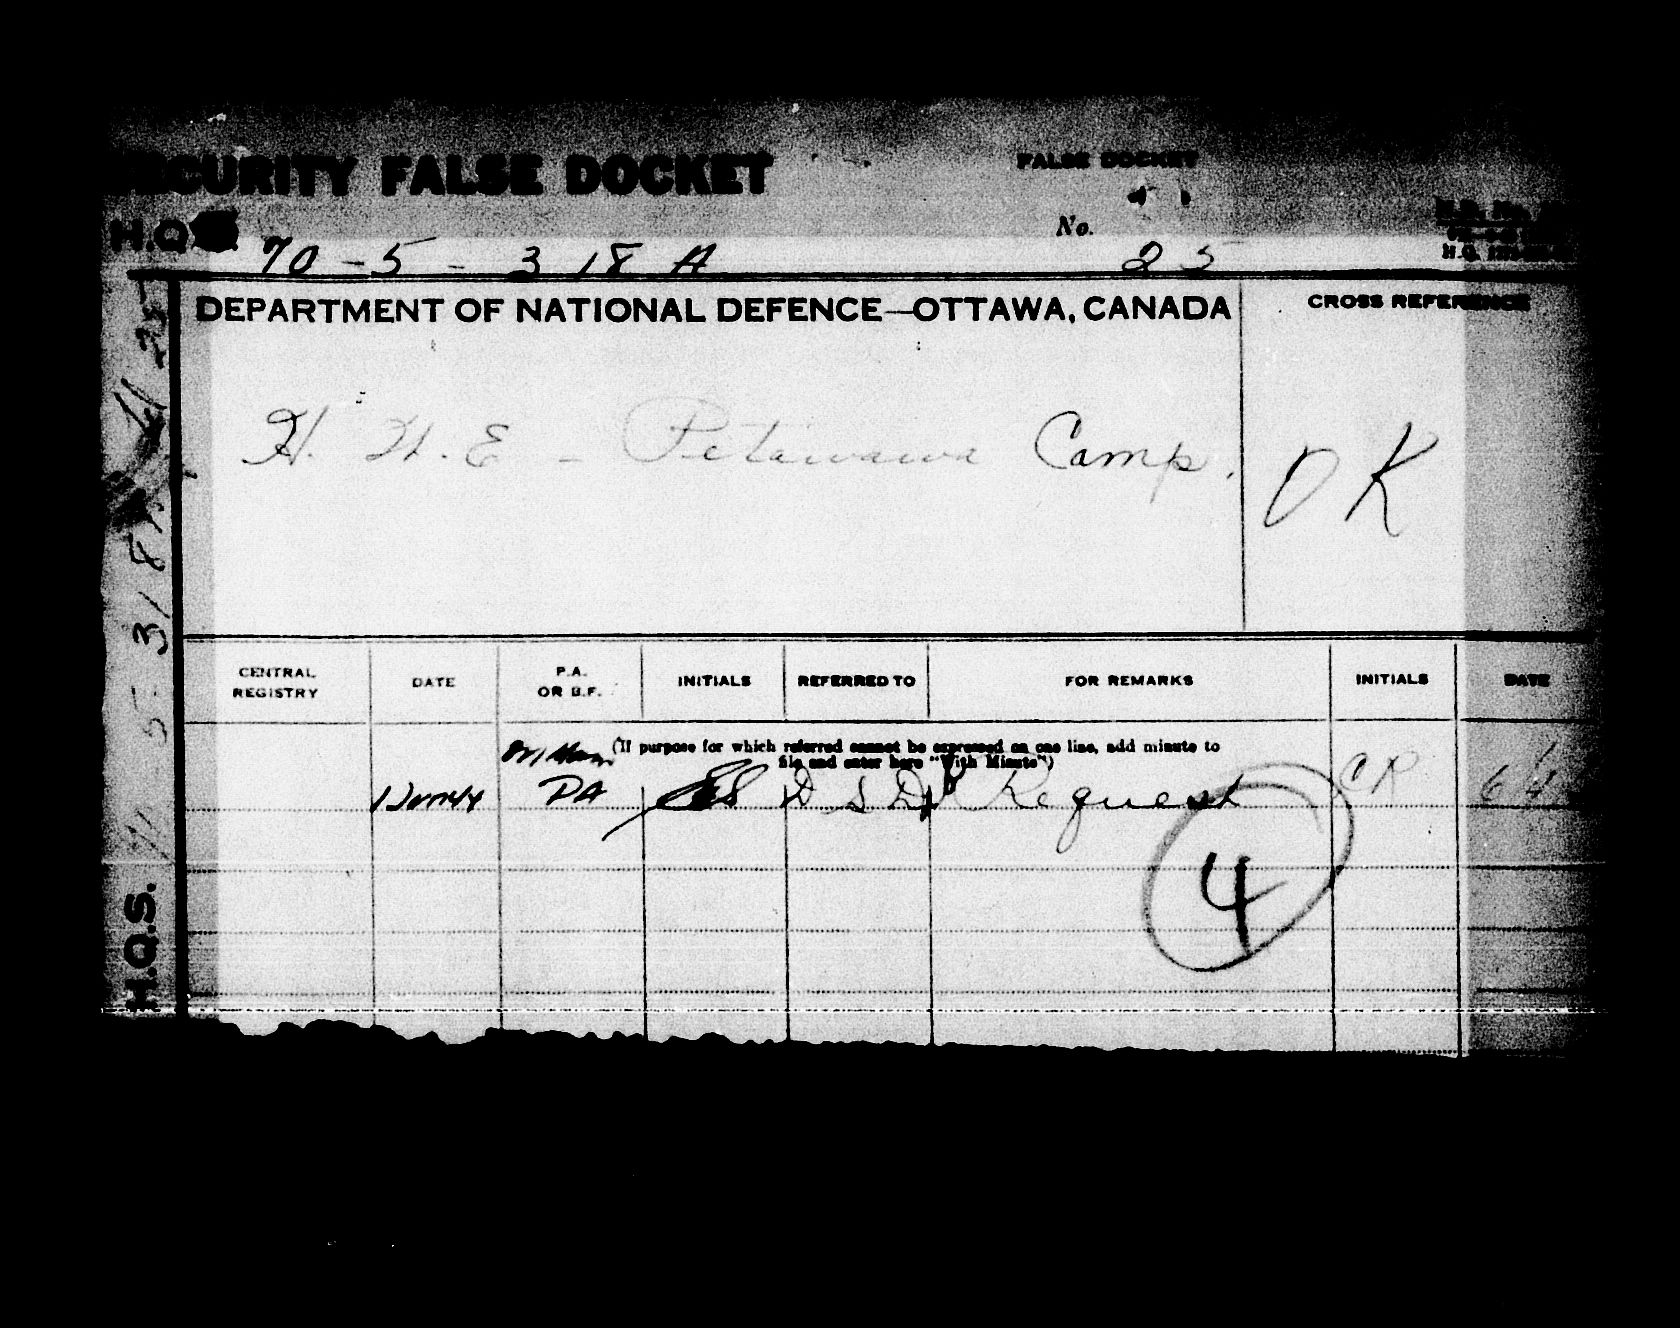 SECURITY FALSE DOCKET
FALSE DOCKET
H.Q.
70-5-318A
No. 25
DEPARTMENT OF NATIONAL DEFENCE—OTTAWA, CANADA
CROSS REFERENCE
Petawawa Camp.
OK
CENTRAL REGISTRY
DATE
P.A. OR B.F.
INITIALS
REFERRED TO
FOR REMARKS
INITIALS
DATE
(If purpose for which referred cannot be expressed on one line, add minute to
file and enter here "With Minute")
PA
Request
CR
4
H.Q.S.